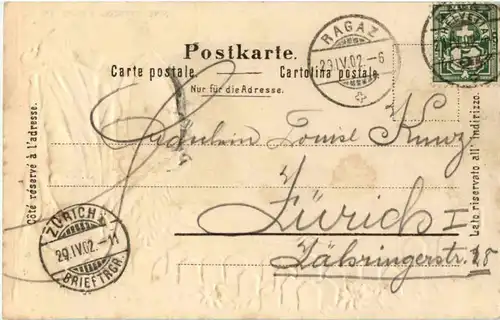 Postkarte.
Carte postale. Cartolina postale.
Nur für die Adresse.
RAGAZ
29.IV.02.-6
HELVETIA
Côté réservé à l'adresse.
Lato riservato all' indirizzo.
Fräulein Louise Kunz
Zürich I
Zähringerstr. 28
ZÜRICH
29.IV.02.-11
BRIEFTRGR.